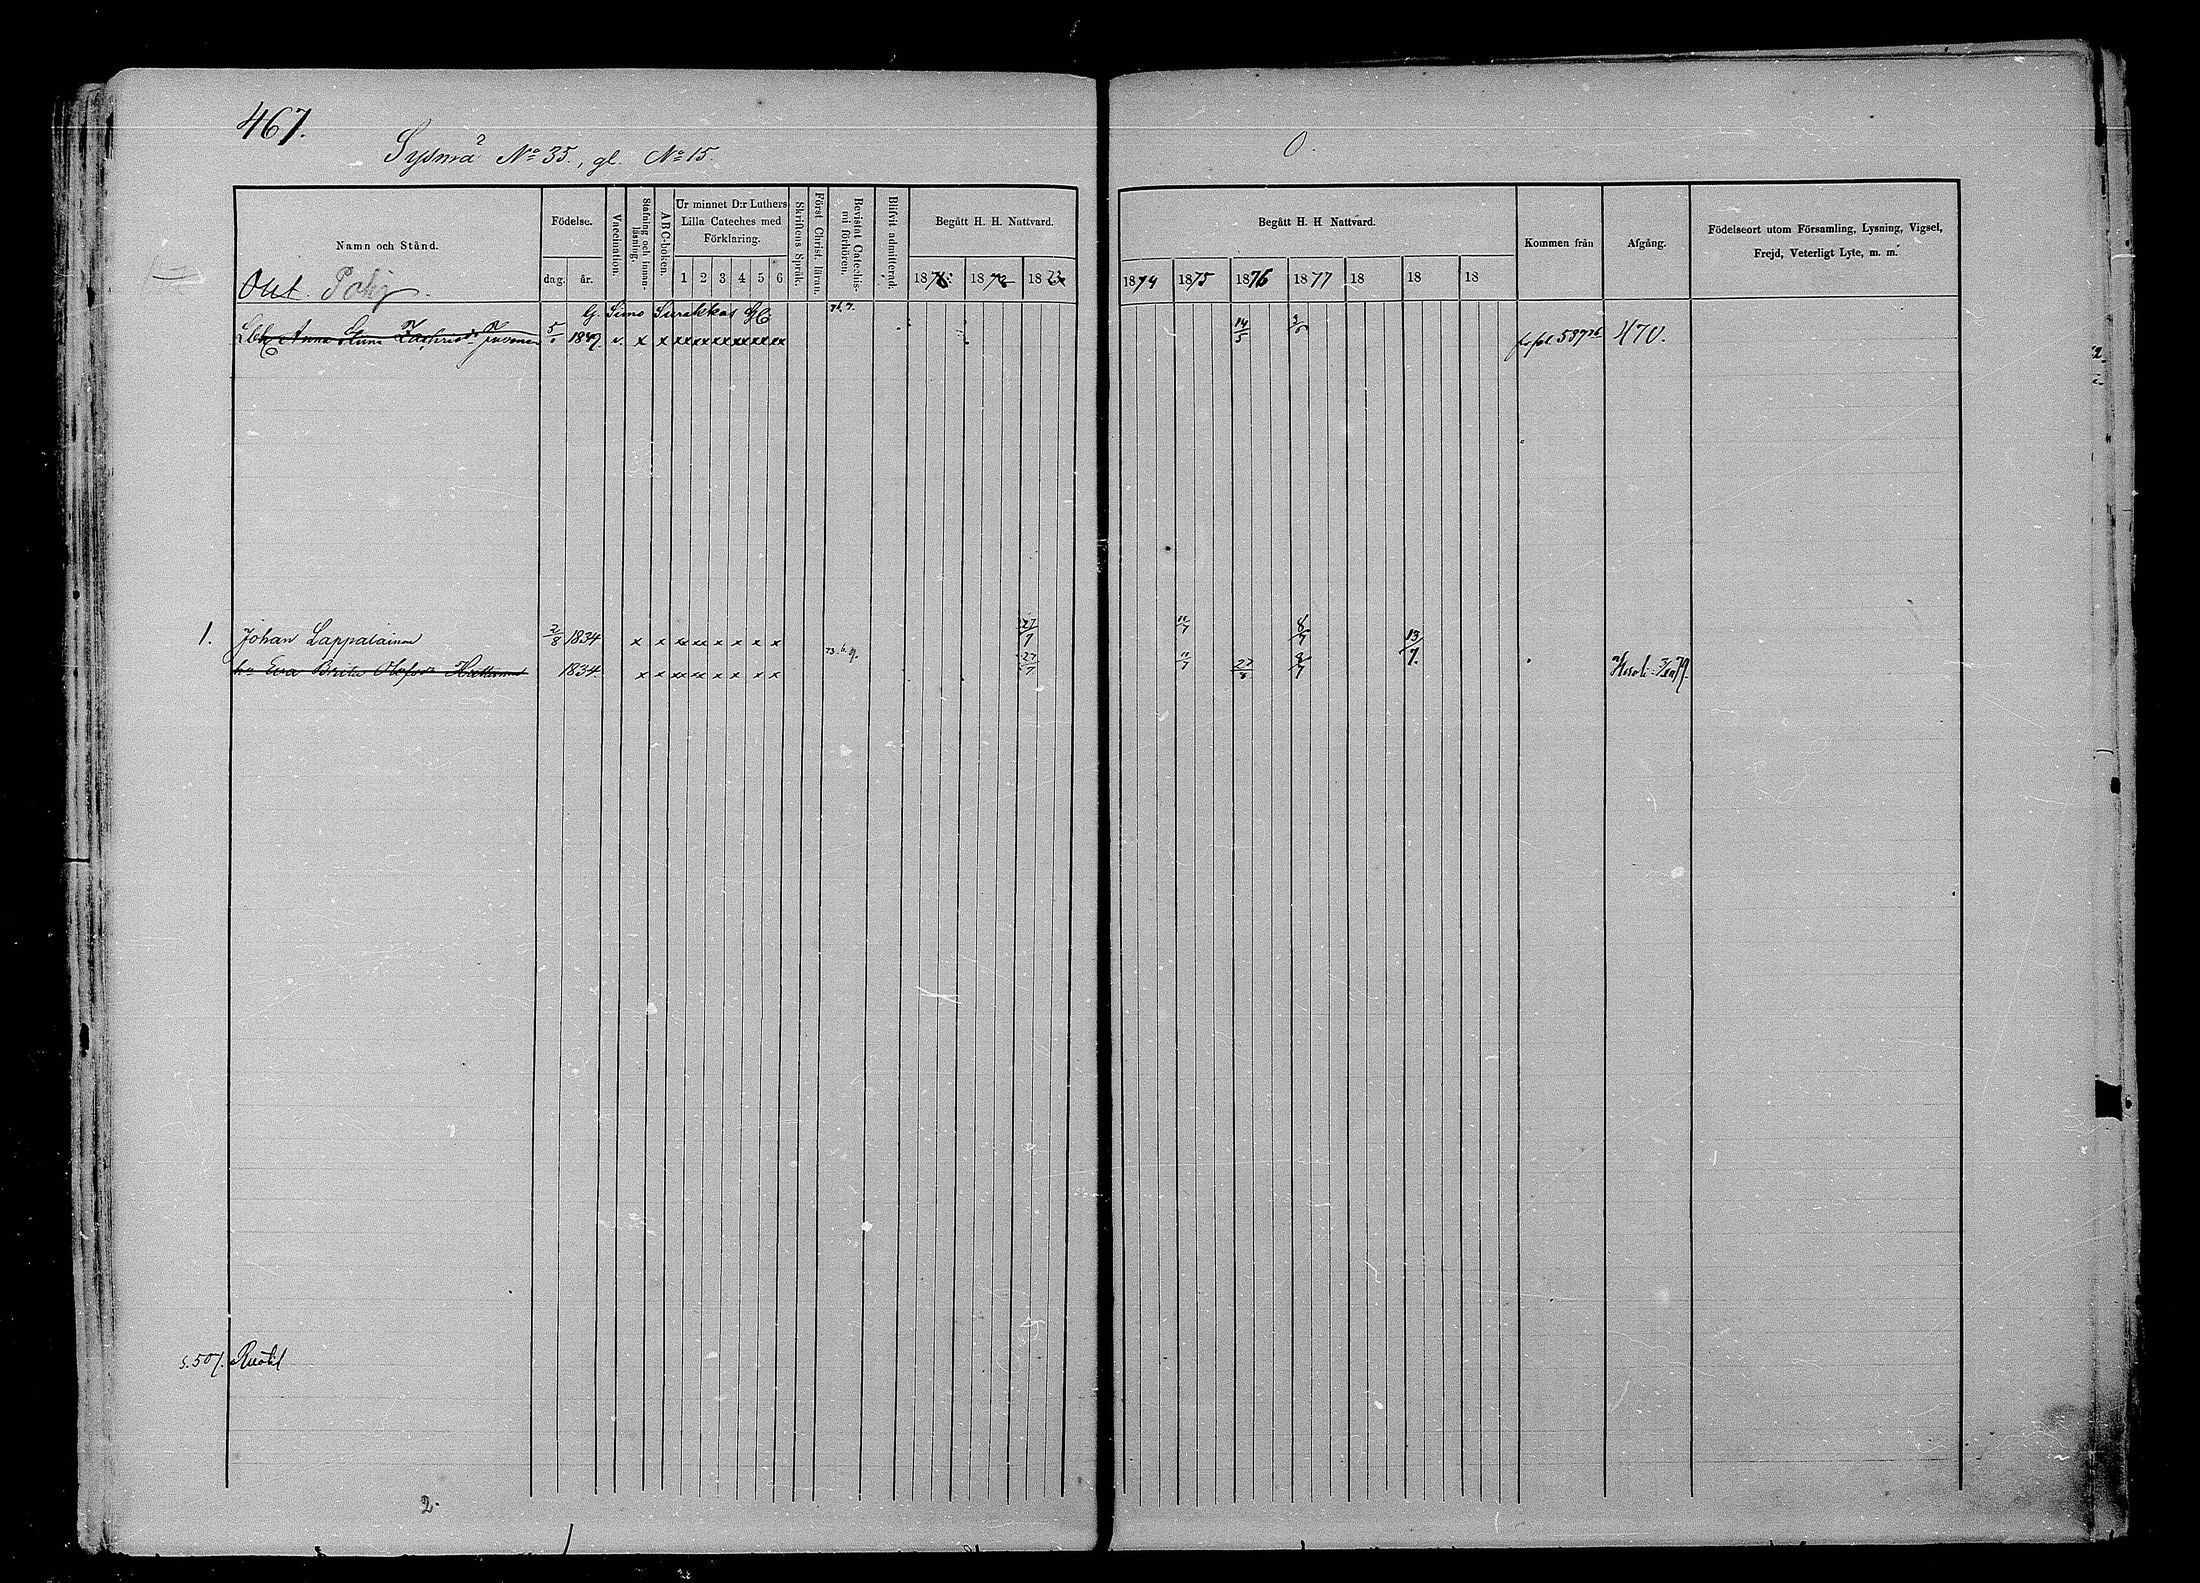 467.
Sysmä No 35., gl. No 15.
O.
Namn och Stånd.
Födelse.
dag. år.
Vaccination.
Stafning och innan-läsning.
ABC-boken.
Ur minnet D:r Luthers Lilla Cateches med Förklaring.
1 2 3 4 5 6
Skriftens Språk.
Först Christ. läran.
Bevistat Catechis-mi förhören.
Blifvit admitterad.
Begått H. H. Nattvard.
Begått H. H Nattvard.
1874 1875 1876 1877 18 18 18
Kommen från
Afgång.
Födelseort utom Församling, Lysning, Vigsel, Frejd, Veterligt Lyte, m. m.
G. Simo Surakkas
Anna 1849. v. x x xx xx xx xx xx xx 14/5 537 470.
1. Johan Lappalainen 2/8 1834 x x xx xx x x x x 27/7 11/7 8/7 13/7.
Eva Brita Olofsdr 1834. x x xx xx x x x x 27/7 11/7 8/7
s. 507.
2.